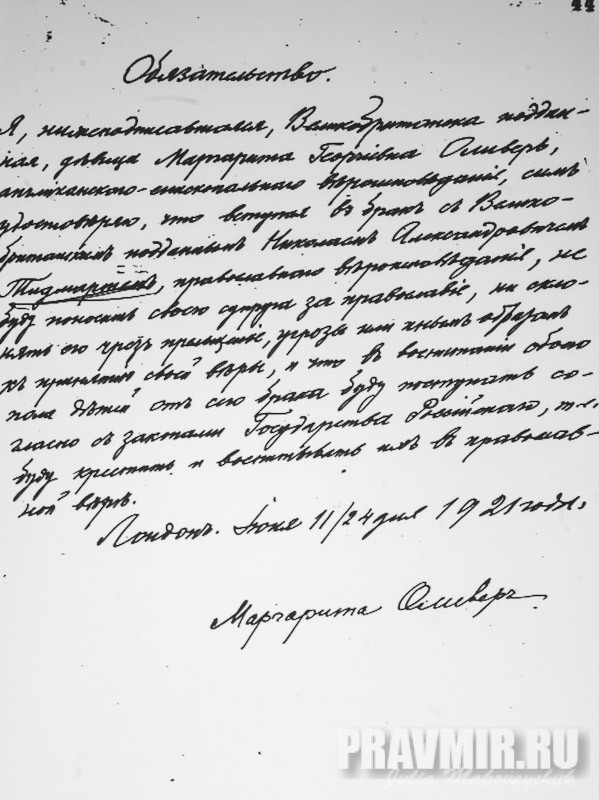 44
Обязательство.
Я, нижеподписавшаяся, Великобританская поддан-
ная, дѣвица Маргарита Георгіевна Оливеръ,
англиканского-епископальнаго вѣроисповѣданія, симъ
удостовѣряю, что вступая въ бракъ съ Велико-
британскимъ подданнымъ Николаемъ Александровичемъ
Тидмаршемъ, православнаго вѣроисповѣданія, не
буду поносить своего супруга за православіе, ни скло-
нять его чрезъ прельщенія, угрозы или инымъ образомъ
къ принятію своей вѣры, и что въ воспитаніи обоего
пола дѣтей отъ сего брака буду поступать со-
гласно съ законами Государства Россійскаго, т.е.
буду крестить и воспитывать ихъ въ православ-
ной вѣрѣ.
Лондонъ. Іюня 11/24 дня 1921 года.
Маргарита Оливеръ
PRAVMIR.RU
Julia Makoveychuk